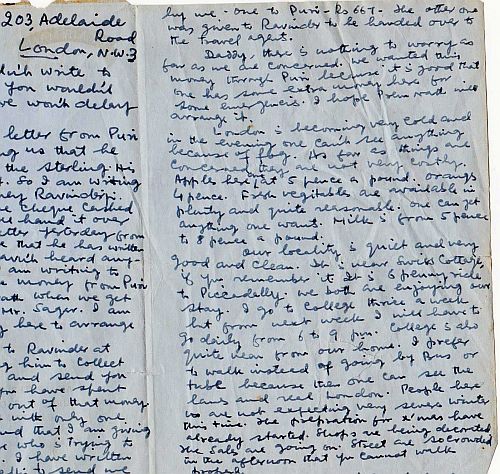 203, Adelaide
Road
London, N.W.3
write to
you would'd
we won't delay
letter from Puri
ng us that he
the sterling His
t. So I am writing
Ravinderji
cashed
hand it over
letter yesterday from
e that he has written
heard any-
I am writing to
e money from Puri
when we get
Mr. Sager. I am
g here to arrange
to Ravinder at
g him to collect
and send you
have spent
out of that money.
with only one
nd that I am giving
who is trying to
I have written
to send we
by me. One to Puri - Rs 667. The other one
was given to Ravinder to be handed over to
the travel agent.
Daddy, there is nothing to worry as
far as we are concerned. We wanted this
money through Puri because it's good that
one has some extra money here for
some emergencies. I hope Prem will
arrange it.
London is becoming very cold and
in the evening one can't see anything
because of fog. As far things are
concerned they are not very costly.
Apples here at 5 pence a pound. Orangs
4 pence. Fresh vegitables are available in
plenty and quite reasonable. One can get
anything one want. Milk is from 5 pence
to 8 pence a pound.
Our locality is quiet and very
good and clean. It's near Swiss Cottage
if you remember it. It's 6 penny ride
to Piccadelly. We both are enjoying our
stay. I go to college thrice a week
but from next week I will have to
go daily from 6 to 9 pm. College is also
quite near from our home. I prefer
to walk instead of going by Bus or
tube because then one can see the
lanes and real London. People here
us are not expecting very sever winter
this time. The preparation for X'mas have
already started. Shops are being decorated
The sales are going on. Street are so crowded
in the afternoon that you cannot walk